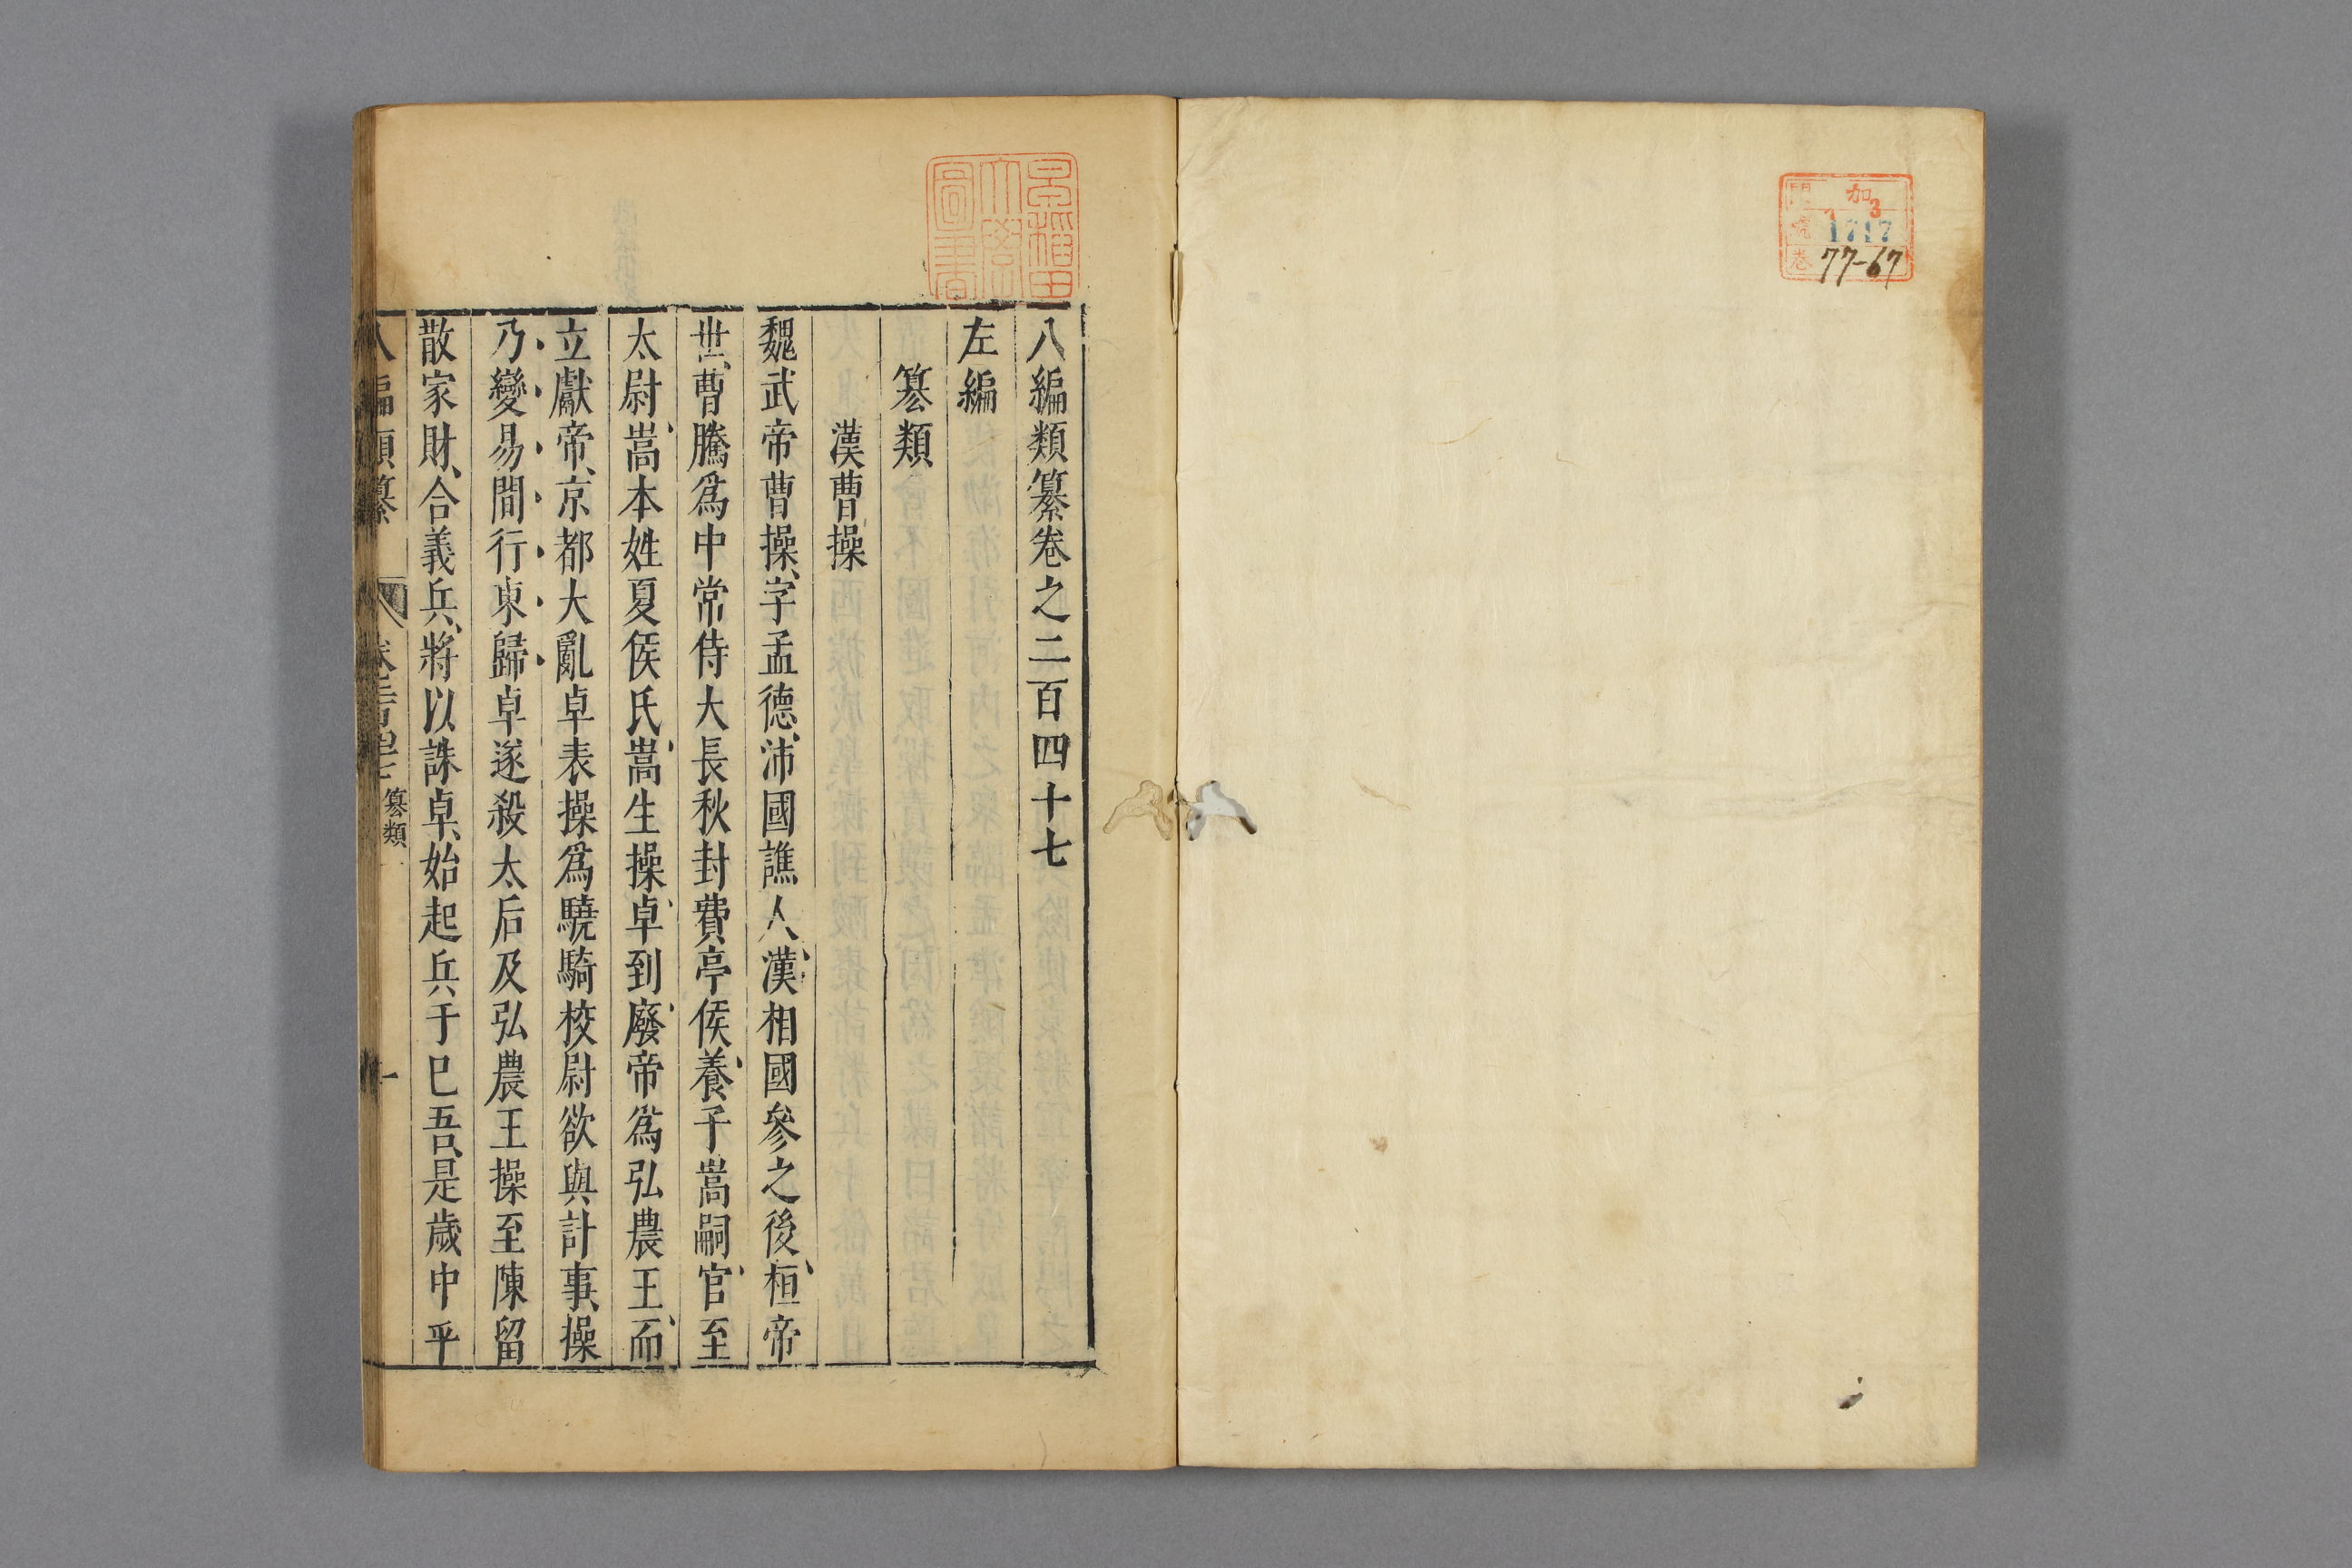 加3
門
號 1717
卷 77-67
早稲田
大學
圖書
八編類纂卷之二百四十七
左編
篡類
漢曹操
魏武帝曹操、字孟德、沛國譙人、漢相國參之後、桓帝
世、曹騰爲中常侍大長秋封費亭侯、養子嵩嗣、官至
太尉、嵩本姓夏侯氏、嵩生操、卓到、廢帝爲弘農王、而
立獻帝、京都大亂卓表操爲驍騎校尉欲與計事、操
乃變易間行東歸卓遂殺太后及弘農王操至陳留
散家財、合義兵、將以誅卓、始起兵于巳吾、是歲中平
八編類纂 卷二百四十七 篡類 一